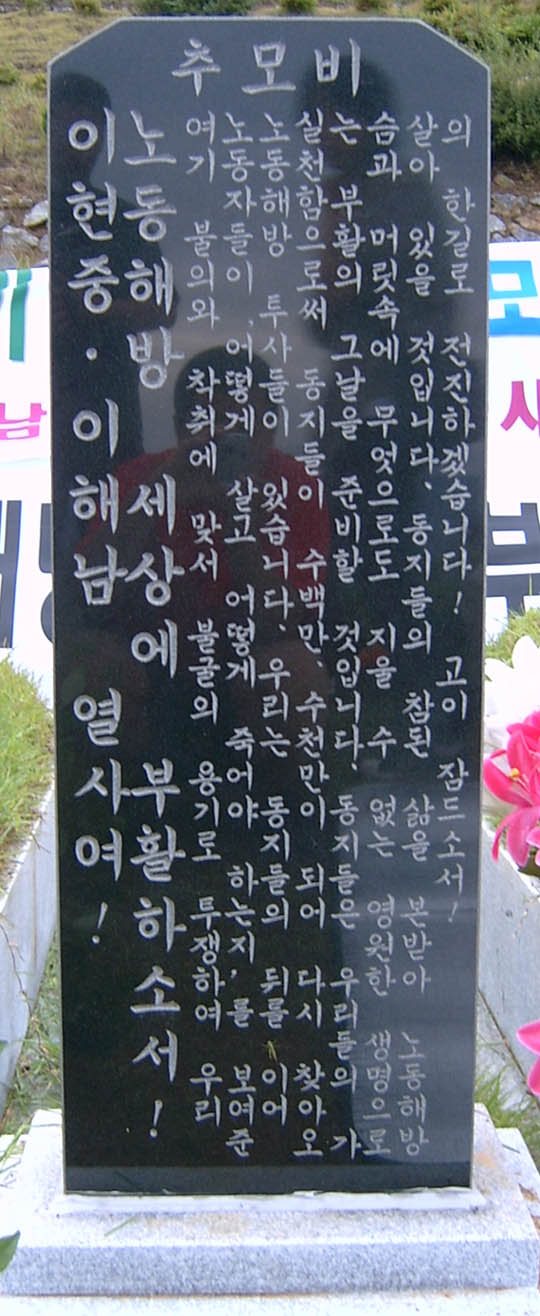 추모비
이현중·이해남 열사여!
노동해방 세상에 부활하소서!
여기 불의와 착취에 맞서 불굴의 용기로 투쟁하여 우리
노동자들이 '어떻게 살고 어떻게 죽어야 하는지'를 보여준
노동해방 투사들이 있습니다. 우리는 동지들의 뒤를 이어
실천함으로써 동지들이 수백만, 수천만이 되어 다시 찾아오
는 부활의 그날을 준비할 것입니다. 동지들은 우리들의 가
슴과 머릿속에 무엇으로도 지을 수 없는 영원한 생명으로
살아 있을 것입니다. 동지들의 참된 삶을 본받아 노동해방
의 한길로 전진하겠습니다! 고이 잠드소서!
남
모
새